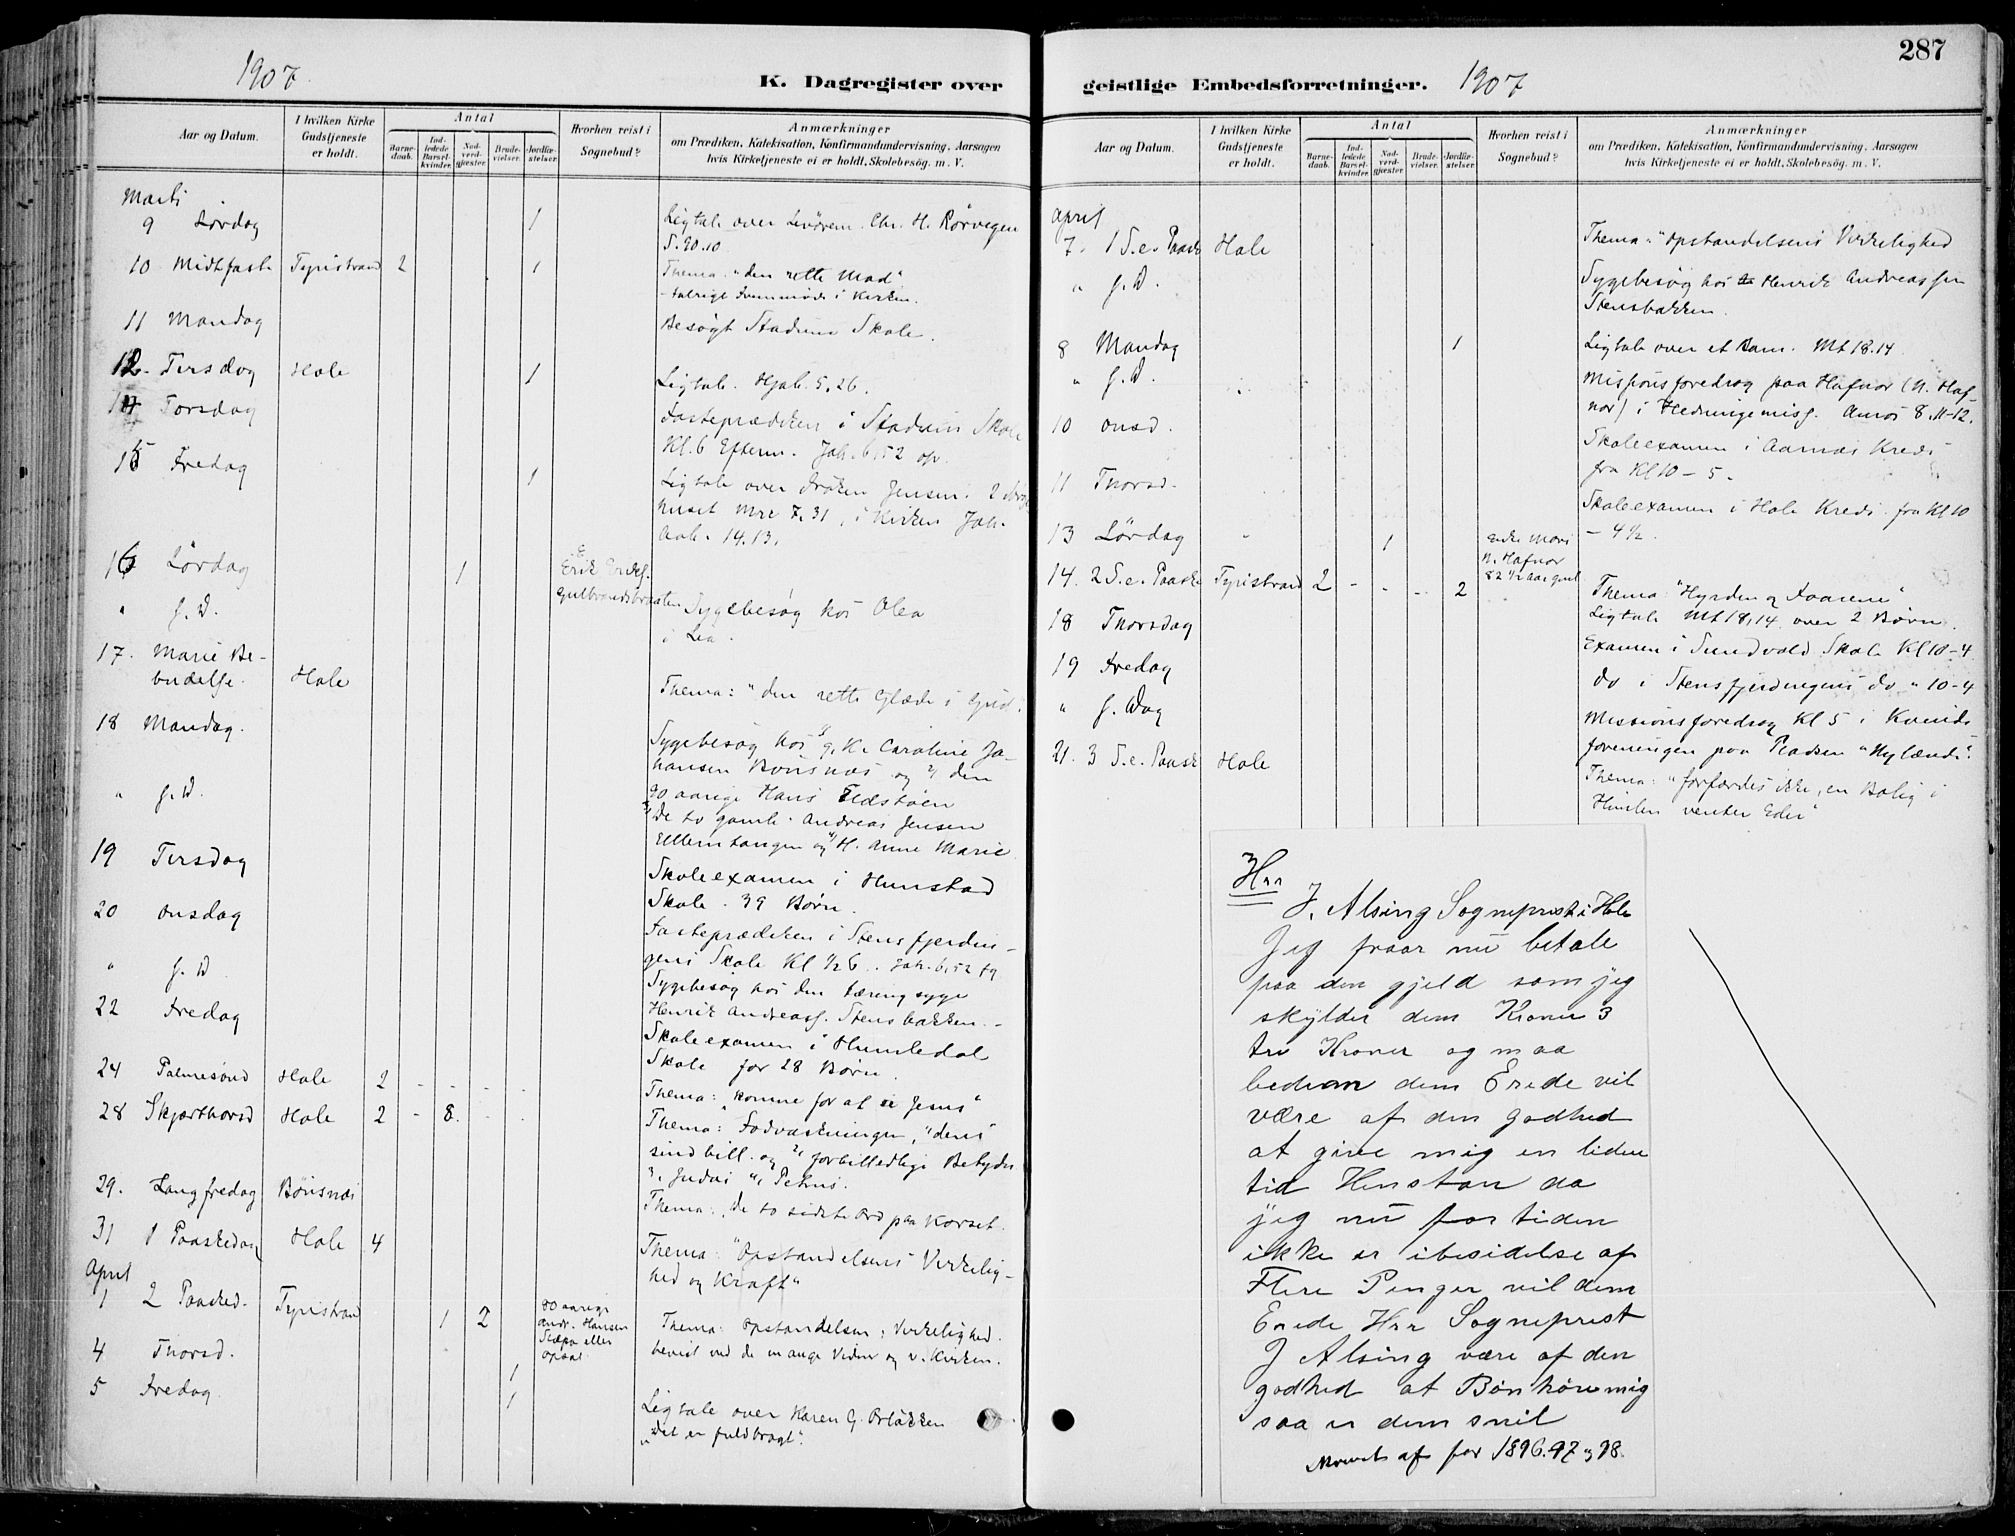 1907
K. Dagregister over
Aar og Datum.
I hvilken Kirke Gudstjeneste er holdt.
Antal
Barnedaab.
Indledede Barselkvinder.
Nadverdgjæster.
Brudevielser.
Jordfæstelser.
Hvorhen reist i Sognebud?
Anmærkninger
om Prædiken, Katekisation, Konfirmandundervisning. Aarsagen
hvis Kirketjeneste ei er holdt. Skolebesög. m. V.
Marti
9 Lørdag 1 Ligtale over Chr. H. Rørvegen
5.90.10
10 Midtfaste Tyristrand 2 1 Thema: "den rette Mad"
- talrigt Fremmøde i Kirken.
11 Mandag Besøgt Stadums Skole.
12. Tirsdag Hole 1 Ligtale. Hjob. 5, 26.
14 Torsdag Fasteprædiken i Stadum Skole
Kl. 6 Efterm. Joh. 6, 52 ov.
15 Fredag 1 Ligtale over Frøken Jensen. I
huset Mrc 7, 31, i Kirken Joh.
Aab. 14.13.
16 Lørdag 1 Erik Eriks.
Gulbrandsbraaten
" s. D. Sygebesøg hos Olea
i Lia.
17. Marie Be-
budelse. Hole Thema: "den rette Glæde i Gud".
18 Mandag. Sygebesøg hos g. K. Caroline Jo-
hansen Bønsnæs og 2) den
" s. D. 90 aarige Hans
3) De to gamle. Andreas Jensen
Ullerntangen og 4) H. Anne Marie
19 Tirsdag Skoleexamen i Hunstad
Skole. 39 Børn.
20 Onsdag Fasteprædiken i Stensfjerdin-
gens Skole Kl ½ 6. Joh. 6, 52 fg
" s. D Sygebesøg hos den tæringsyge
Henrik Andreass. Stensbakken. -
22 Fredag Skoleexamen i Humledal
Skole for 28 Børn.
24 Palmesønd Hole 2 - - - - Thema: "komme for at se Jesus"
28 Skjærthorsd Hole 2 - 8. - . Thema: Fodvaskningen, "dens
sindbill. og 2) forbilledlige Betydn
3) Judas 4) Petrus.
29. Langfredag Bønsnæs Thema: "De to sidste Ord paa Korset.
31 1 Paaskedag Hole 4 Thema: "Opstandelsens Virkelig-
hed og Kraft"
April
1 2 Paasked. Tyristrand 1 2 80 aarige
Andr. Hansen
eller
Opsal Thema: Opstandelsens Virkelighed.
bevist ved de mange Vidner og v. Kirken.
4 Thorsd. 1
5 Fredag. 1 Ligtale over Karen G. Orløkken
"Det er fuldbragt".
287
geistlige Embedsforretninger. 1907
Aar og Datum.
I hvilken Kirke Gudstjeneste er holdt.
Antal
Barnedaab.
Indledede Barselkvinder.
Nadverdgjæster.
Brudevielser.
Jordfæstelser.
Hvorhen reist i Sognebud?
Anmærkninger
om Prædiken, Katekisation, Konfirmandundervisning. Aarsagen
hvis Kirketjeneste ei er holdt. Skolebesög. m. V.
April
7. 1 S. e. Paaske Hole Thema: "Opstandelsens Virkelighed
" s. D. Sygebesøg hos Henrik Andreassen
Stensbakken.
8 Mandag 1 Ligtale over et Barn. Mt 18.14
" s. D. Missionsforedrag paa Hafnor (N. Haf-
nor) i Hedningemiss. Amos 8, 11-12.
10 Onsd. Skoleexamen i Aarnæs Kreds
fra Kl 10 - 5.
11 Thorsd. Skoleexamen i Hole Kreds fra Kl 10
- 4½.
13 Lørdag " 1 Enke Mari
N. Hafnor
82 ½ aar gml
14. 2 S. e. Paaske Tyristrand 2 - - - 2 Thema: "Hyrden og Faarene"
Ligtale Mt 18, 14 over 2 Børn.
18 Thorsdag Examen i Sundvold Skole Kl 10-4
19 Fredag do i Stensfjerdingens do " 10-4
" s. Dag Missionsforedrag Kl 5 i Kvinde
foreningen paa Pladsen "Nylænde".
21. 3 S. e. Paaske Hole Thema: "forfærdes ikke, en Bolig i
Himlen venter Eder"
Hrr
J. Alsing Sogneprest i Hole
Jeg faaar nu betale
paa den gjeld som jeg
skylder dem Kroner 3
tre Kroner og maa
bedion dem Erede vil
være af den godhed
at give mig en liden
tid Henstan da
jeg nu for tiden
ikke er ibesidelse af
Flere Penger vil dem
Erede Hrr Sogneprest
J Alsing være af den
godhed at Bønhøre mig
saa er dem snil
af for 1896. 97 og 98.